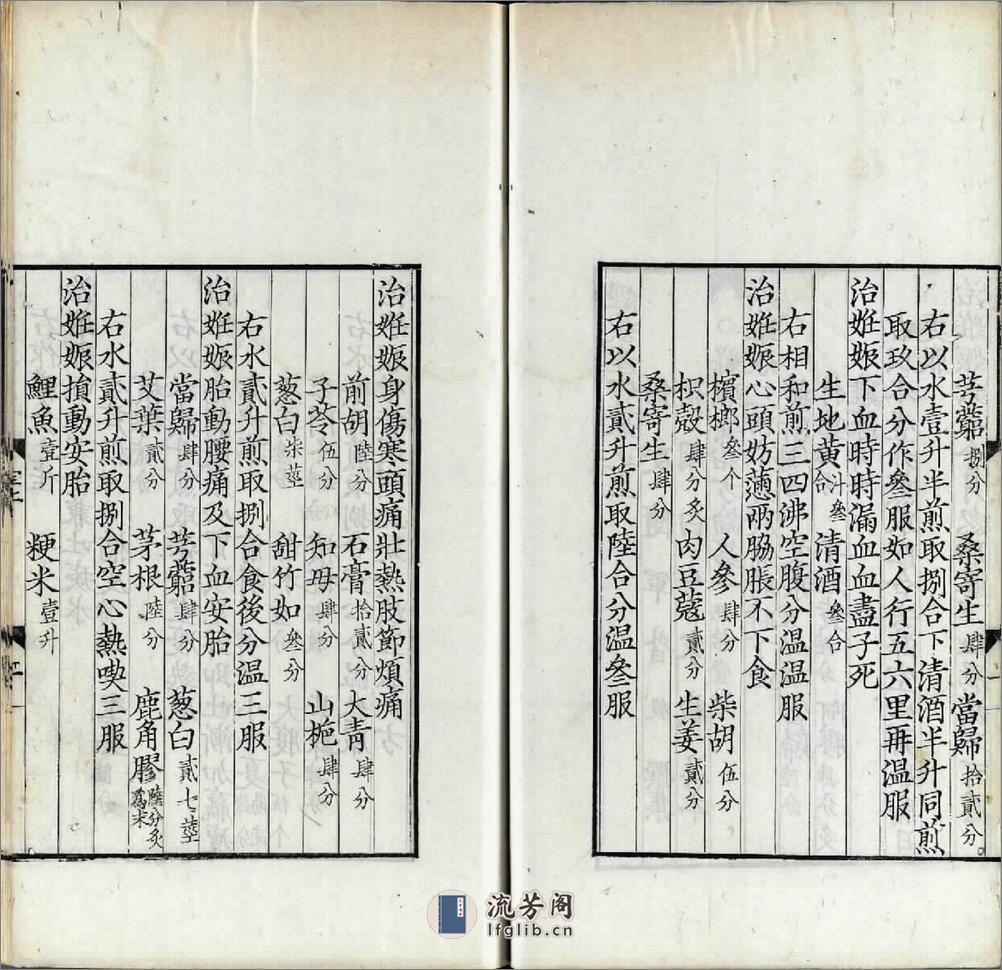 芎藭捌分 桑寄生肆分 當歸拾貳分
右以水壹升半煎取捌合下清酒半升同煎
取玖合分作叄服如人行五六里再温服
治姙娠下血時時漏血血盡子死
生地黄汁叄合 清酒叄合
右相和煎三四沸空腹分温温服
治姙娠心頭妨懣兩脇脹不下食
檳榔叄个 人參肆分 柴胡伍分
枳殼肆分炙 肉豆蔻貳分 生姜貳分
桑寄生肆分
右以水貳升煎取陸合分温叄服
治姙娠身傷寒頭痛壯熱肢節煩痛
前胡陸分 石膏拾貳分 大青肆分
子芩伍分 知毋肆分 山梔肆分
葱白柒莖 甜竹如叄分
右水貳升煎取捌合食後分温三服
治姙娠胎動腰痛及下血安胎
當歸肆分 芎藭肆分 葱白貳七莖
艾葉貳分 茅根陸分 鹿角膠陸分炙爲末
右水貳升煎取捌合空心熱喫三服
治姙娠損動安胎
鯉魚壹斤 粳米壹升
流芳阁
lfglib.cn